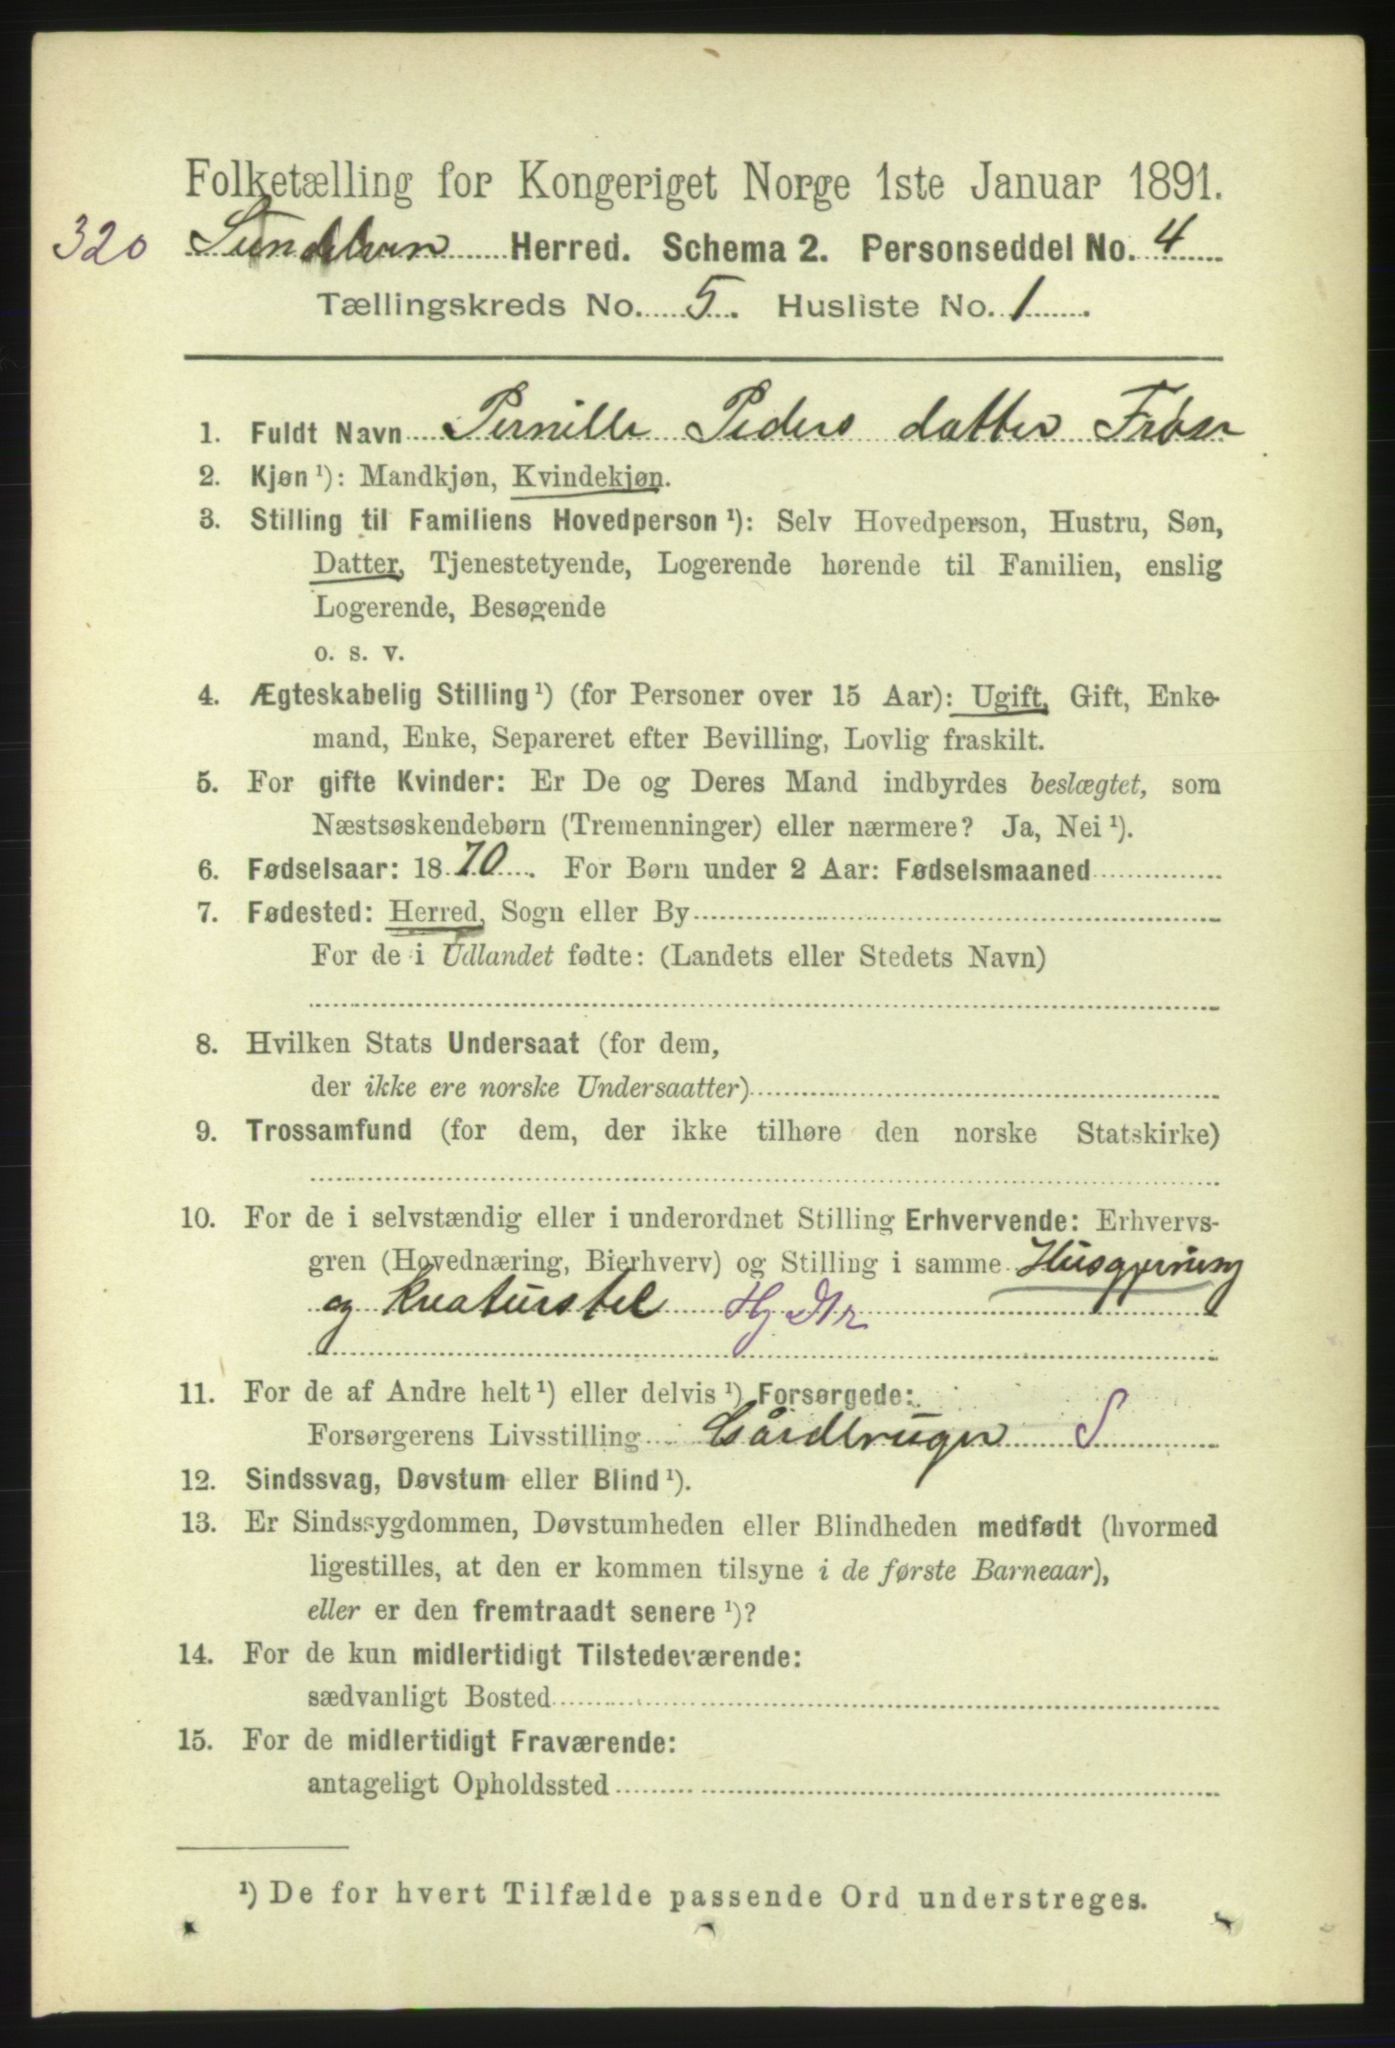 Folketælling for Kongeriget Norge 1ste Januar 1891.
320 Sundalen Herred. Schema 2. Personseddel No. 4
Tællingskreds No. 5. Husliste No. 1.
1. Fuldt Navn Pernille Peders datter
2. Kjøn ¹): Mandkjøn, Kvindekjøn.
3. Stilling til Familiens Hovedperson ¹): Selv Hovedperson, Hustru, Søn,
Datter, Tjenestetyende, Logerende hørende til Familien, enslig
Logerende, Besøgende
o. s. v.
4. Ægteskabelig Stilling ¹) (for Personer over 15 Aar): Ugift, Gift, Enke-
mand, Enke, Separeret efter Bevilling, Lovlig fraskilt.
5. For gifte Kvinder: Er De og Deres Mand indbyrdes beslægtet, som
Næstsøskendebørn (Tremenninger) eller nærmere? Ja, Nei ¹).
6. Fødselsaar: 1870. For Børn under 2 Aar: Fødselsmaaned
7. Fødested: Herred, Sogn eller By
For de i Udlandet fødte: (Landets eller Stedets Navn)
8. Hvilken Stats Undersaat (for dem,
der ikke ere norske Undersaatter)
9. Trossamfund (for dem, der ikke tilhøre den norske Statskirke)
10. For de i selvstændig eller i underordnet Stilling Erhvervende: Erhvervs-
gren (Hovednæring, Bierhverv) og Stilling i samme Husgjerning
og kreaturstel Hj
11. For de af Andre helt ¹) eller delvis ¹) Forsørgede:
Forsørgerens Livsstilling Gårdbruger S
12. Sindssvag, Døvstum eller Blind ¹).
13. Er Sindssygdommen, Døvstumheden eller Blindheden medfødt (hvormed
ligestilles, at den er kommen tilsyne i de første Barneaar),
eller er den fremtraadt senere ¹)?
14. For de kun midlertidigt Tilstedeværende:
sædvanligt Bosted
15. For de midlertidigt Fraværende:
antageligt Opholdssted
¹) De for hvert Tilfælde passende Ord understreges.